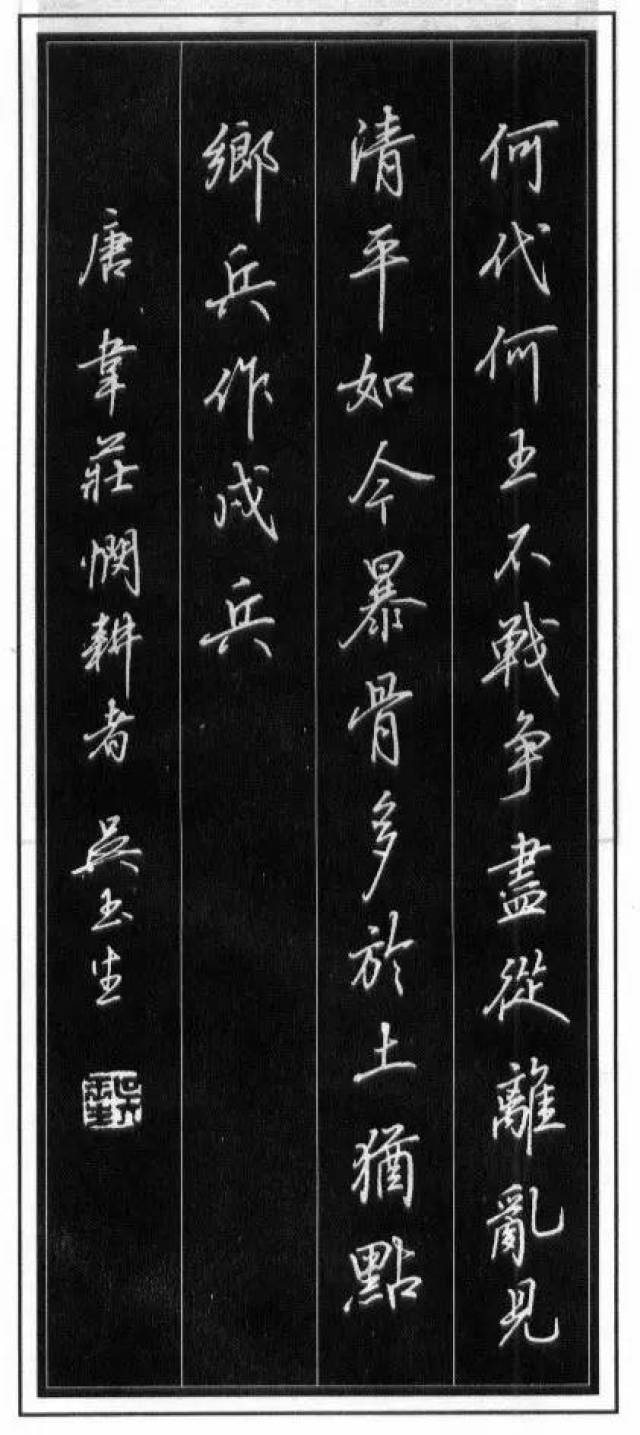 何代何王不戰争盡從離亂見
清平如今暴骨多於土猶點
鄉兵作戍兵
唐韋莊憫耕者 吳玉生